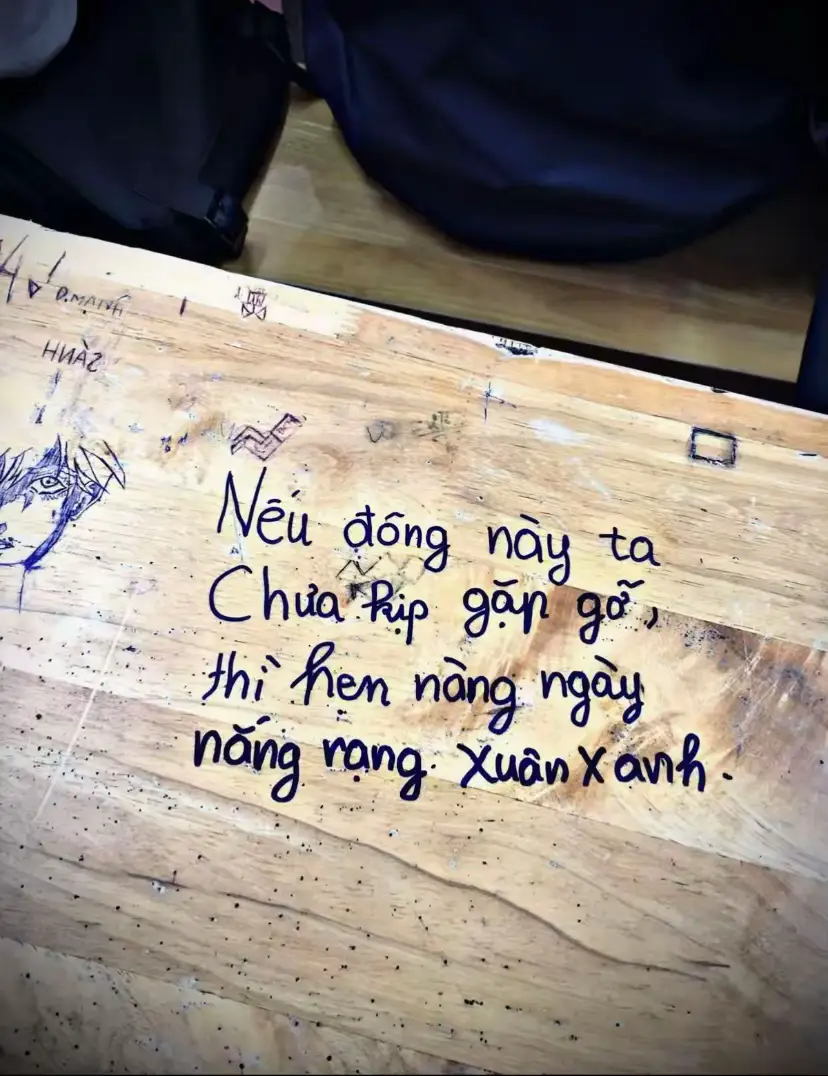 D.MẠNH
HNÀS
Nếu đông này ta
Chưa kịp gặp gỡ,
thì hẹn nàng ngày
nắng rạng Xuân Xanh.